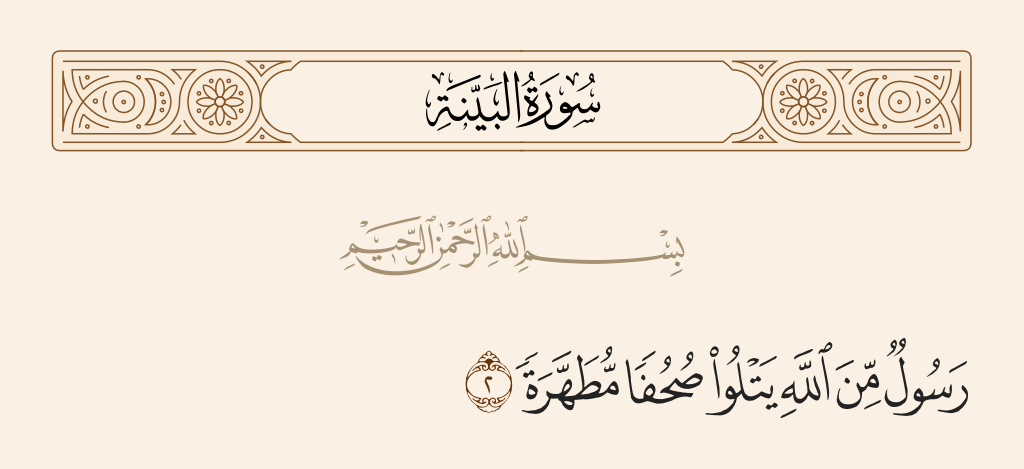 سُورَةُ البَيِّنَةِ
بِسْمِ ٱللَّهِ ٱلرَّحْمَٰنِ ٱلرَّحِيمِ
رَسُولٌ مِّنَ ٱللَّهِ يَتْلُوا۟ صُحُفًا مُّطَهَّرَةً ٢